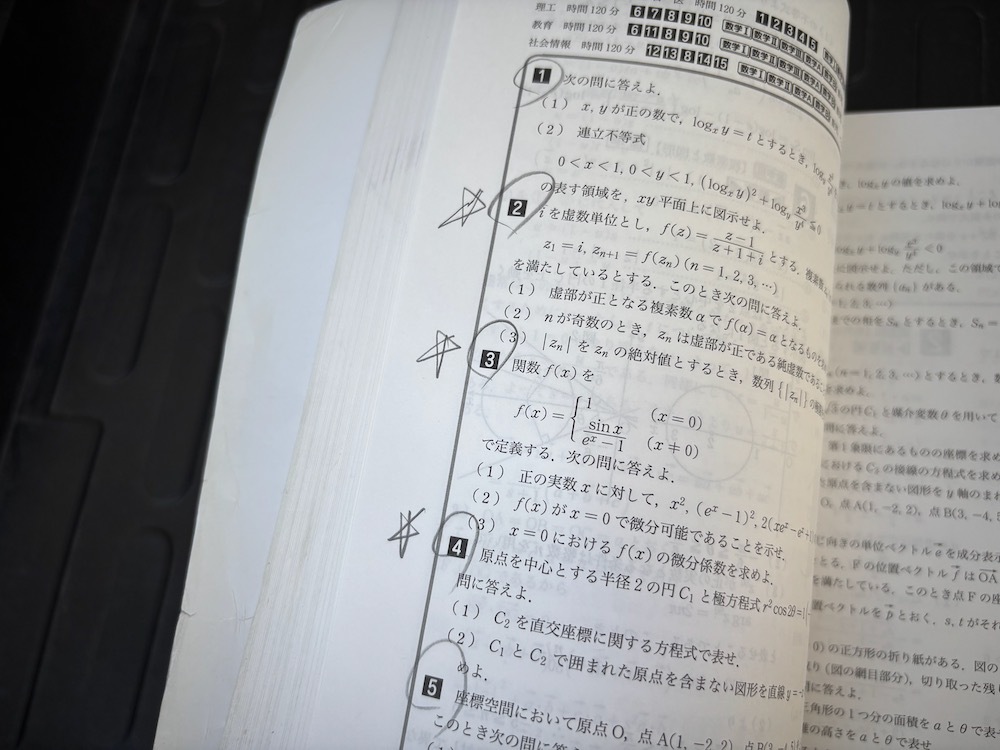 理工 時間120分 6 7 8 9 10 数学Ⅰ 数学Ⅱ 1 2 3 4 5
教育 時間120分 6 11 8 9 10 数学Ⅰ 数学Ⅱ 数学Ⅲ 数学A
社会情報 時間120分 12 13 8 14 15 数学Ⅰ 数学Ⅱ 数学A
1 次の問に答えよ．
(1) x, yが正の数で，log_x y = t とするとき，log_y
(2) 連立不等式
0 < x < 1, 0 < y < 1, (log_x y)² + log_y
の表す領域を，xy平面上に図示せよ．
2 iを虚数単位とし，f(z) = (z−1)/(z+1+i) とする．
z₁ = i, zₙ₊₁ = f(zₙ) (n = 1, 2, 3, …)
を満たしているとする．このとき次の問に答えよ．
(1) 虚部が正となる複素数αでf(α) = αとなるもの
(2) nが奇数のとき，zₙは虚部が正である純虚数である
(3) |zₙ|をzₙの絶対値とするとき，数列{|zₙ|}の
3 関数f(x)を
f(x) = { 1 (x = 0)
sin x/(eˣ − 1) (x ≠ 0)
で定義する．次の問に答えよ．
(1) 正の実数xに対して，x², (eˣ − 1)², 2(xeˣ − eˣ +
(2) f(x)がx = 0で微分可能であることを示せ．
(3) x = 0におけるf(x)の微分係数を求めよ．
4 原点を中心とする半径2の円C₁と極方程式r² cos 2θ =
問に答えよ．
(1) C₂を直交座標に関する方程式で表せ．
(2) C₁とC₂で囲まれた原点を含まない図形を直線y =
めよ．
5 座標空間において原点O，点A(1, −2, 2)，
このとき次の問に答
の値を求めよ．
とするとき，
に図示せよ．ただし，この領域
がある．
とするとき，Sₙ =
(n = 1, 2, 3, …)とするとき，
求めよ．
の円C₁と媒介変数θを用いて
問に答えよ．
第1象限にあるものの座標を求め
におけるC₂の接線の方程式を求
原点を含まない図形をy軸のまわ
O，点A(1, −2, 2)，点B(3, −4,
向きの単位ベクトルeを成分表示
とる．Fの位置ベクトルfはOA
を満たしている．このとき点Fの座
置ベクトルをpとおく．s, tがそれ
の正方形の折り紙がある．図の
(図の網目部分)，切り取った残り
に答えよ．
三角形の1つ分の面積をaとθで表
の高さをaとθで表せ